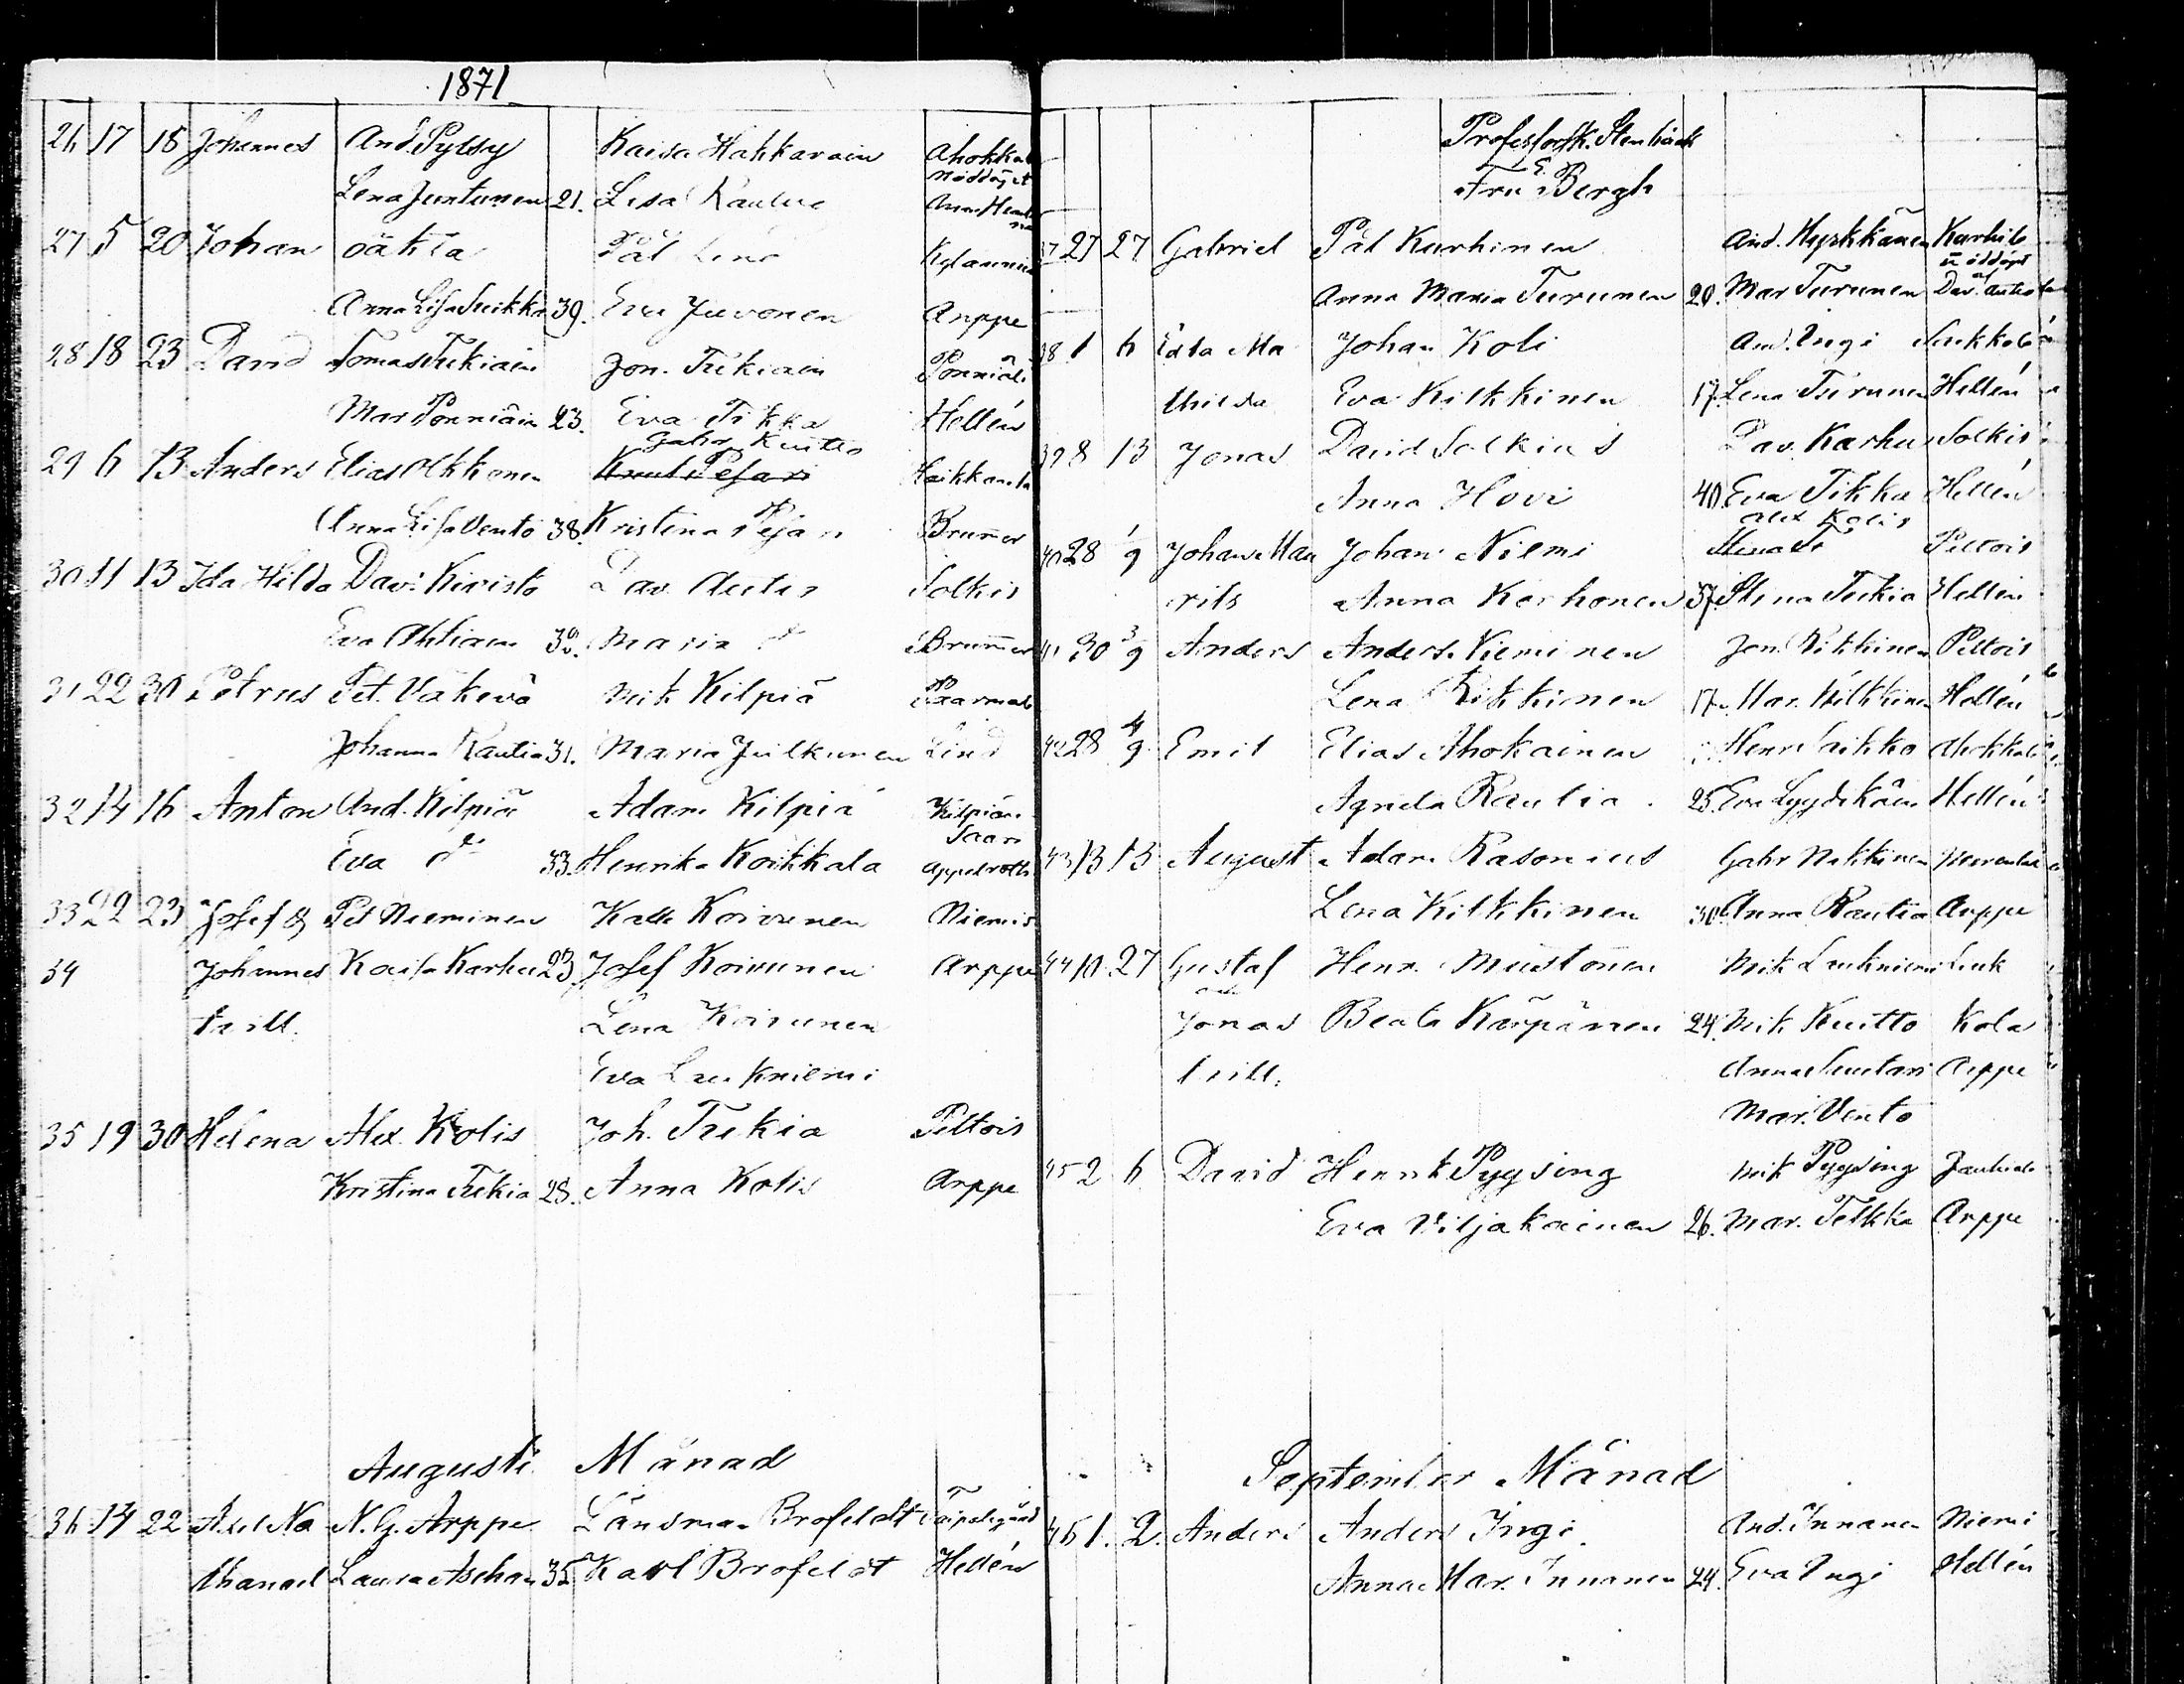 1871
26 17 18 Johannes And. Pylsy Kaisa Hakkarain Ahokkala
nöddöpt
Lena Juntunen 21. Lisa Rautia
27 5 20 Johan Pål
Anna Lisa Suikka 39. Eva Juvonen Arppe
28 18 23 David Tomas Tukiain Jon. Tukiain Ponniäli
Mar Ponniäin 23. Eva Tikka Hellén
Gabr Kuitto
29 6 13 Anders Elias Olkkonen Haikkanla
Anna Lisa Vento 38. Kristina Pesari Brummer
30 11 13 Ida Hilda Dav. Kiristo Dav. Auter Solkis
Eva Ahtiain Maria do Brummer
31 22 30 Petrus Pet. Väkevä Mik Kilpiä Paarmal
Johanna Rautia 31. Maria Julkunen Lind
32 14 16 Anton And. Kilpiä Adam Kilpiä Kilpiän
Saari
Eva do 33. Henrika Koikkala Appelroth
33 22 23 Josef & Pet Nieminen Kalle Koivunen Niemis
34 Johannes Kaisa Karhu 23. Josef Koivunen Arppe
tvill. Lena Koivunen
Eva Laukniemi
35 19 30 Helena Alex. Kolis Joh. Tukia Peltois
Kristina Tukia 28. Anna Kolis Arppe
Augusti Månad
36 14 22 Axel Na N. G. Arppe Länsman Brofeldt Taipalegård
thanael Laura Aschan 35 Karl Brofeldt Hellén
Professorsk. Stenbäck
Fru E. Bergh
37 27 27 Gabriel Pål Kurhinen And. Myrkkänen Karhib
nöddöpt
af
Anna Maria Turunen 20. Mar Turunen Dav. Auter
38 1 6 Edla Ma Johan Koli And. Ingi Sukkolo
thilda Eva Kilkkinen 17. Lena Turunen Hellén
39 8 13 Jonas David Solkius Dav. Karhu Solkis
Anna Hovi 40. Eva Tikka Hellén
Alex Kolis
40 28 1/9 Johan Mau Johan Niemi Peltois
rits Anna Korhonen 37. Stina Tukia Hellén
41 30 3/9 Anders Anders Nieminen Jon. Kikkinen Peltois
Lena Kikkinen 17. Mar. Kilkkinen Hellén
42 28 4/9 Emil Elias Ahokainen Henr Saikko Ahokkala
Agneta Rautia 25. Eva Lyydikäin Hellén
43 13 15 August Adam Rasonius Gabr Nikkinen
Lena Kilkkinen 30. Anna Rautia Arppe
44 10 27 Gustaf Henr. Mustonen Mik Laukniemi Luuk
och
Jonas Beata Kärpänen 24. Mik Kuitto Kola
tvill. Anna Suutari Arppe
Mar. Vento
45 2 6 David Henrik Pyysing Mik Pyysing
Eva Viljakainen 26. Mar. Telkka Arppe
September Månad
46 1. 2. Anders Anders Ingi. And. Innanen Niemi
Anna Mar. Innanen 24. Eva Ingi Hellén